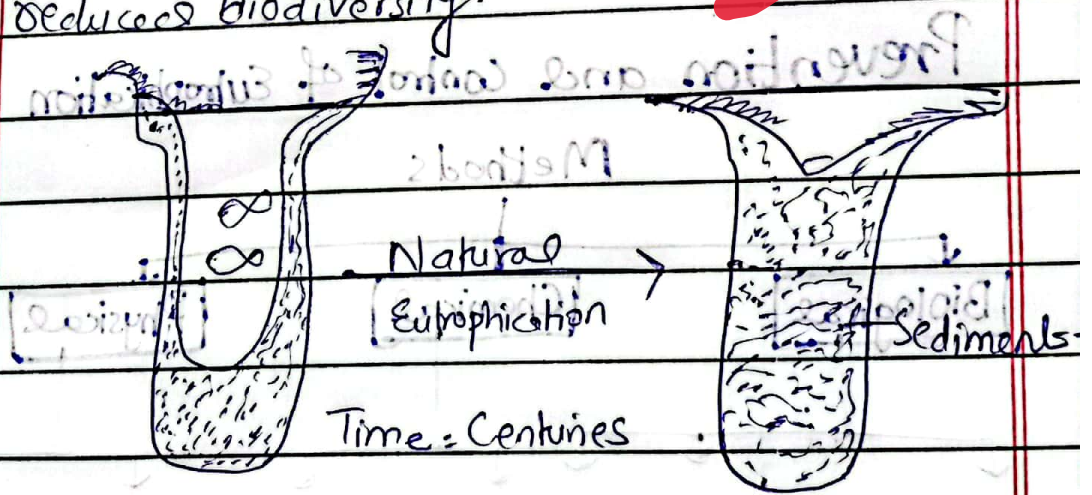 reduces biodiversity.
Natural
Eutrophication
Sediments
Time = Centuries